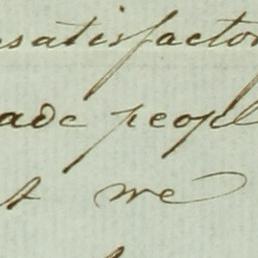 satisfactor
ade people
we